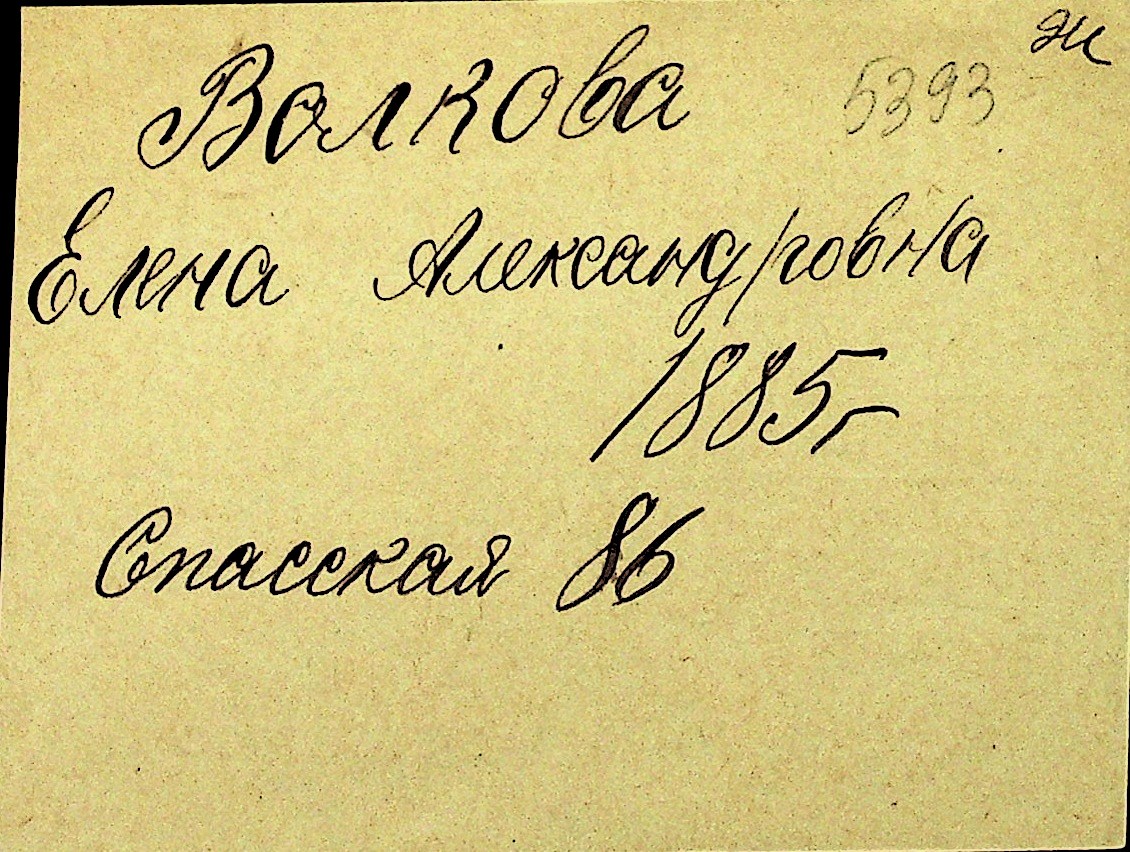 ж
Волкова 5393
Елена Александровна
1885 г
Спасская 86